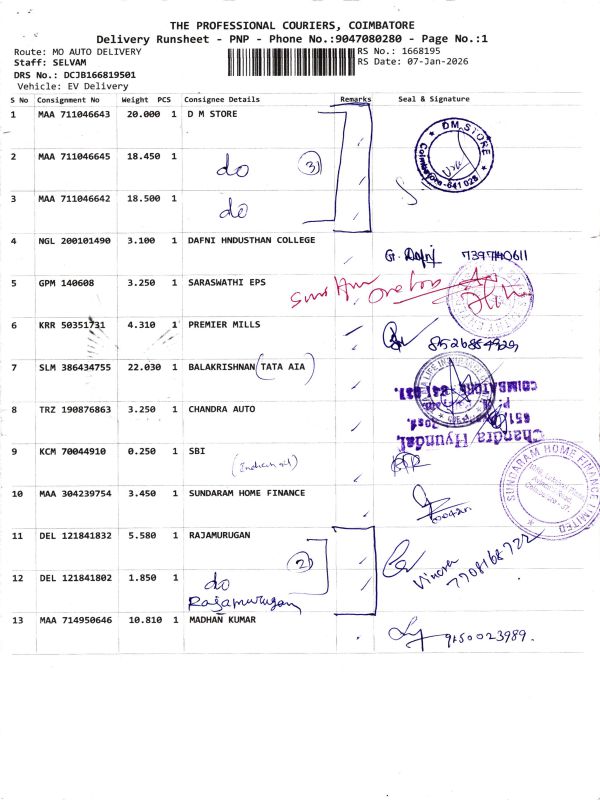 THE PROFESSIONAL COURIERS, COIMBATORE
Delivery Runsheet - PNP - Phone No.:9047080280 - Page No.:1
Route: MO AUTO DELIVERY
RS No.: 1668195
Staff: SELVAM
RS Date: 07-Jan-2026
DRS No.: DCJB166819501
Vehicle: EV Delivery
S No Consignment No Weight PCS Consignee Details Remarks Seal & Signature
1 MAA 711046643 20.000 1 D M STORE
DM STORE
Coimbatore-641 028
2 MAA 711046645 18.450 1 do 3
3 MAA 711046642 18.500 1 do
4 NGL 200101490 3.100 1 DAFNI HNDUSTHAN COLLEGE
G. Dafni 7397140611
5 GPM 140608 3.250 1 SARASWATHI EPS
6 KRR 50351731 4.310 1 PREMIER MILLS
8526854929
7 SLM 386434755 22.030 1 BALAKRISHNAN (TATA AIA)
COIMBATORE 641 037.
8 TRZ 190876863 3.250 1 CHANDRA AUTO
Chandra Hyundai,
9 KCM 70044910 0.250 1 SBI
(Indian oil)
10 MAA 304239754 3.450 1 SUNDARAM HOME FINANCE
SUNDARAM HOME FINANCE LIMITED
11 DEL 121841832 5.580 1 RAJAMURUGAN
2
12 DEL 121841802 1.850 1 do
Rajamurugan
7708168722
13 MAA 714950646 10.810 1 MADHAN KUMAR
9150023989.